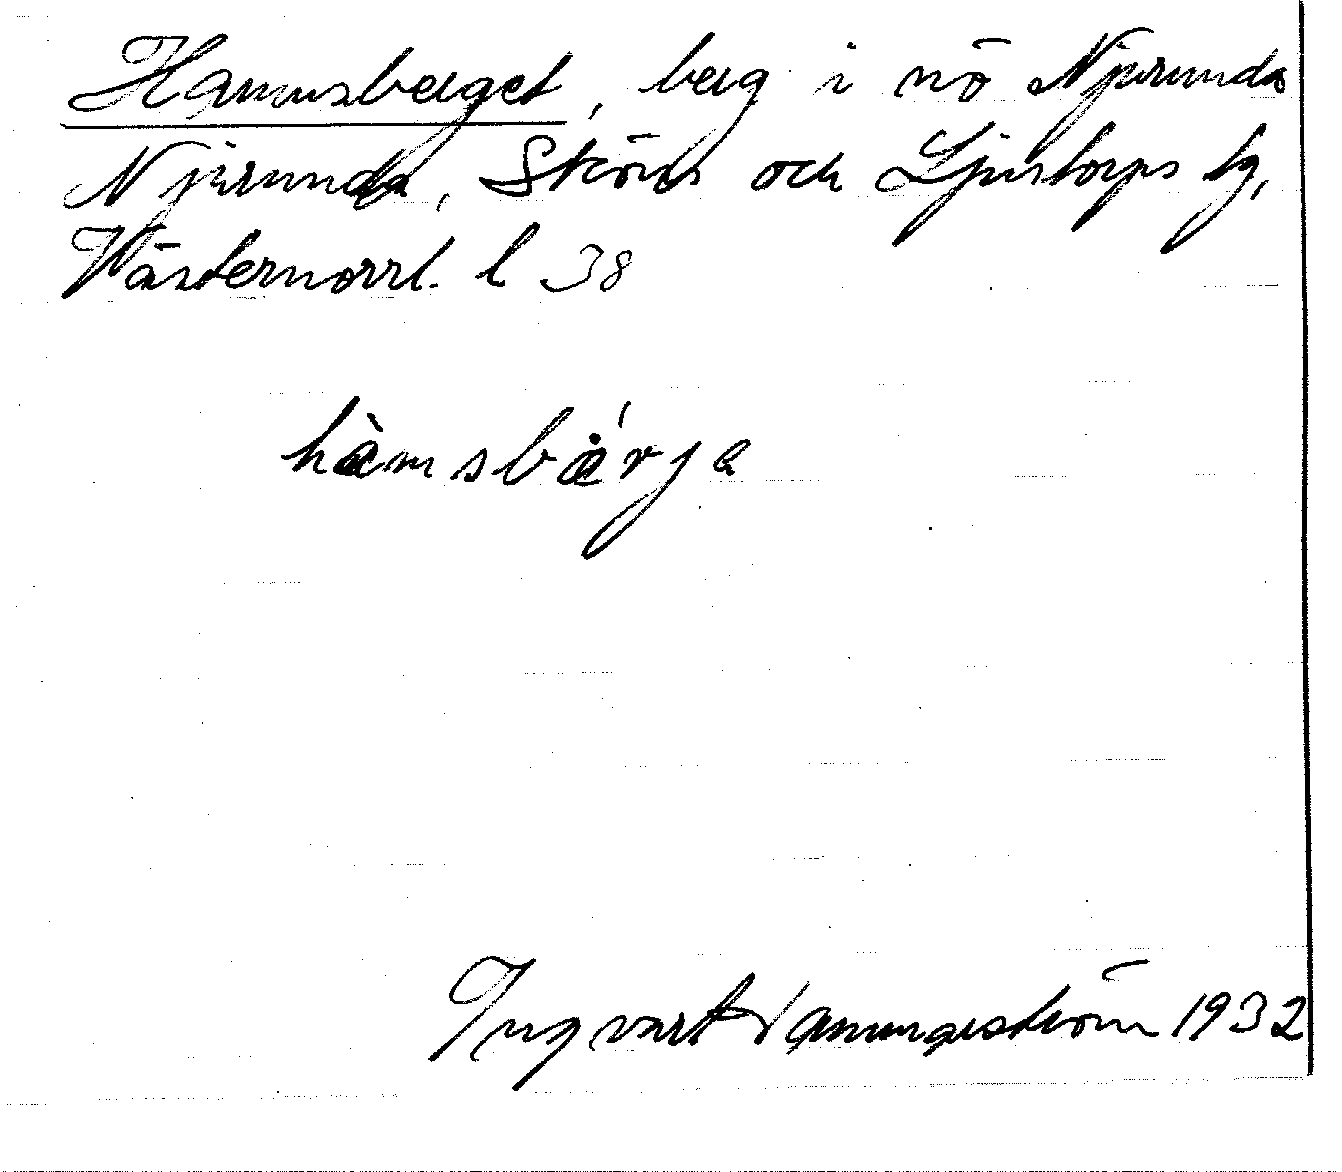 Hamnsberget, berg i nö Njurunda
Njurunda, Sköns och Ljustorps tg,
Västernorrl. l 38
hàmsbȧ́rja
Ingvart 1932